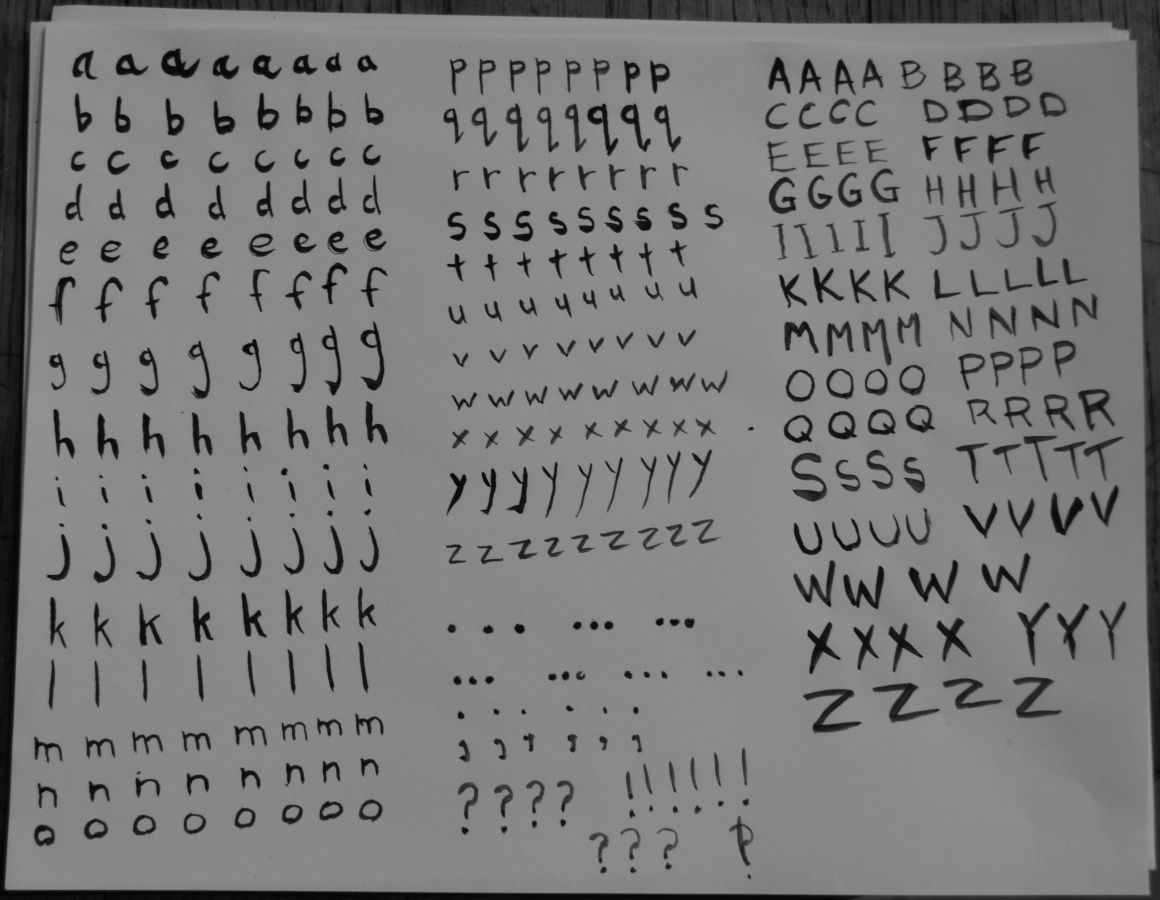 a a a a a a a a
b b b b b b b b
c c c c c c c c
d d d d d d d d
e e e e e e e e
f f f f f f f f
g g g g g g g g
h h h h h h h h
i i i i i i i i
j j j j j j j j
k k k k k k k k
l l l l l l l l
m m m m m m m m
n n n n n n n n
o o o o o o o o
p p p p p p p p
q q q q q q q q
r r r r r r r r
s s s s s s s s s
t t t t t t t t
u u u u u u u u
v v v v v v v v
w w w w w w w w
x x x x x x x x x .
y y y y y y y y y
z z z z z z z z z
. . . ... ...
... ... ... ...
. . . . . .
, , , , , ,
? ? ? ? ! ! ! ! ! !
? ? ? ‽
A A A A B B B B
C C C C D D D D
E E E E F F F F
G G G G H H H H
I I I I I J J J J
K K K K L L L L L
M M M M N N N N
O O O O P P P P
Q Q Q Q R R R R
S S S S T T T T T
U U U U V V V V
W W W W
X X X X Y Y Y
Z Z Z Z